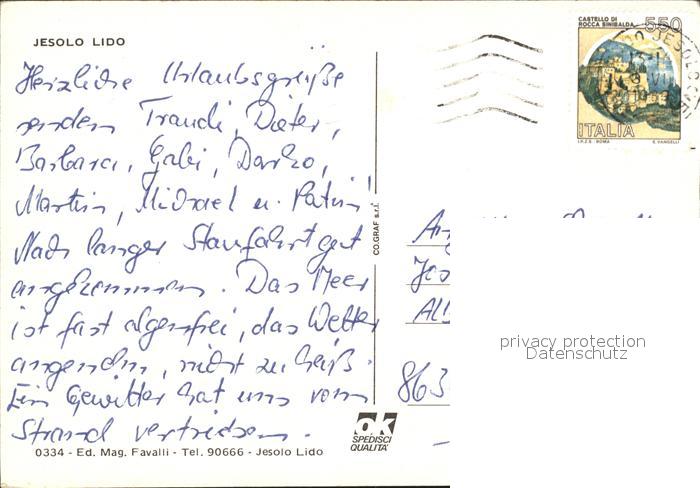 JESOLO LIDO
Herzliche Urlaubsgrüße
senden Traudi, Dieter,
Barbara, Gabi, Darko,
Martin, Michael u. Patrin!
Nach langer Staufahrt gut
angekommen. Das Meer
ist fast algenfrei, das Wetter
angenehm, nicht zu heiß.
Ein Gewitter hat uns vom
Strand vertrieben.
0334 - Ed. Mag. Favalli - Tel. 90666 - Jesolo Lido
CO.GRAF s.r.l.
ok
SPEDISCI
QUALITA'
CASTELLO DI
ROCCA SINIBALDA
550
ITALIA
I.P.Z.S. - ROMA
E. VANGELLI
JESOLO
Jos
All
863
privacy protection
Datenschutz